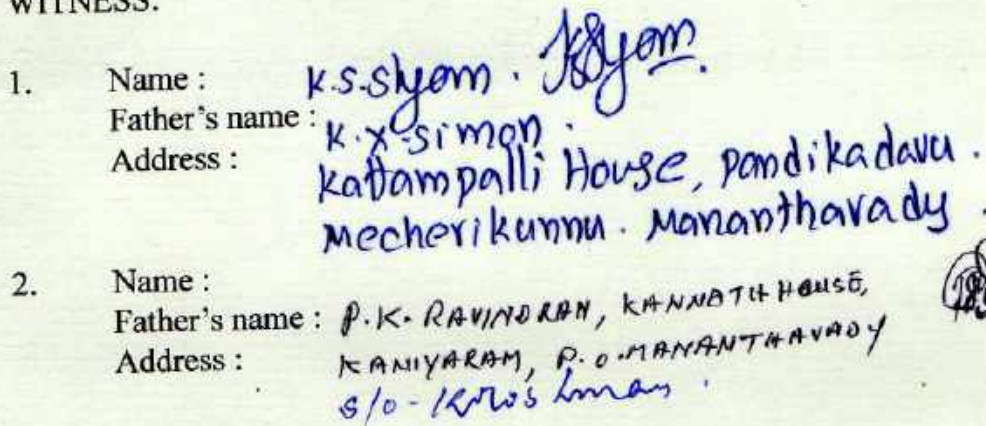 WITNESS:
1. Name : K.S.Shyam.
Father's name : K.X.Simon.
Address : Kattampalli House, Pandikadavu.
Mecherikunnu. Mananthavady.
2. Name :
Father's name : P.K. RAVINDRAN, KANNATH HOUSE,
Address : KANIYARAM, P.O. MANANTHAVADY
S/O -